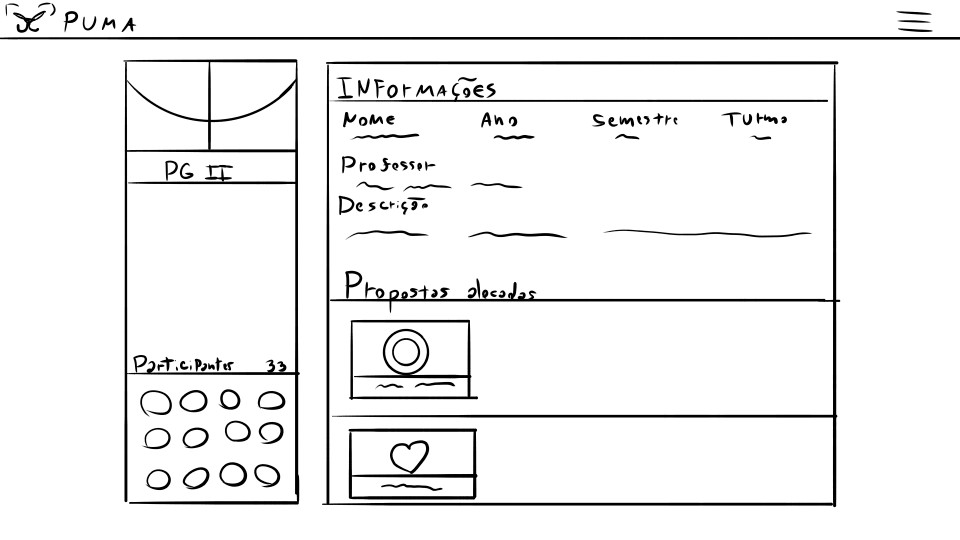 PUMA
PG II
Participantes 33
INFORMAÇÕES
Nome Ano Semestre Turma
Professor
Descrição
Propostas alocadas